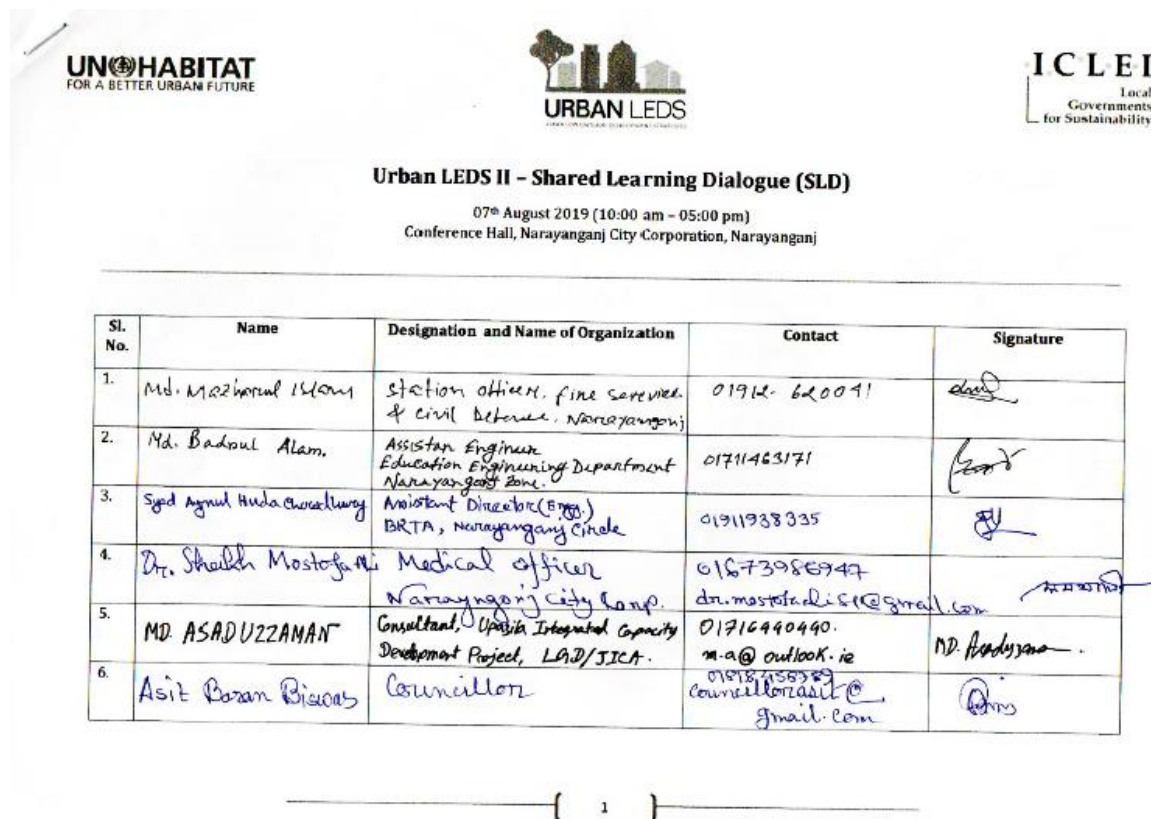 UN HABITAT
FOR A BETTER URBAN FUTURE
URBAN LEDS
I.C.L.E.I
Local
Governments
for Sustainability
Urban LEDS II – Shared Learning Dialogue (SLD)
07th August 2019 (10:00 am – 05:00 pm)
Conference Hall, Narayanganj City Corporation, Narayanganj
Sl. No. Name Designation and Name of Organization Contact Signature
1. Md. Mazharul Islam Station officer, fire service
& civil Defence, Narayangonj 01912-620041
2. Md. Badrul Alam. Assistan Engineer
Education Engineering Department
Narayangonj Zone. 01711463171
3. Syed Aynul Huda Chowdhury Assistant Director (Engg.)
BRTA, Narayanganj Circle 01911938335
4. Dr. Sheikh Mostofa Ali Medical officer
Narayngonj City Corp. 01673986947
5. MD. ASADUZZAMAN Consultant, Upazila Integrated Capacity
Development Project, LGD/JICA. 01716490490.
m-a@outlook.ie MD. Asaduzzaman.
6. Asit Baran Biswas Councillor
councillorasit@
gmail.com
1